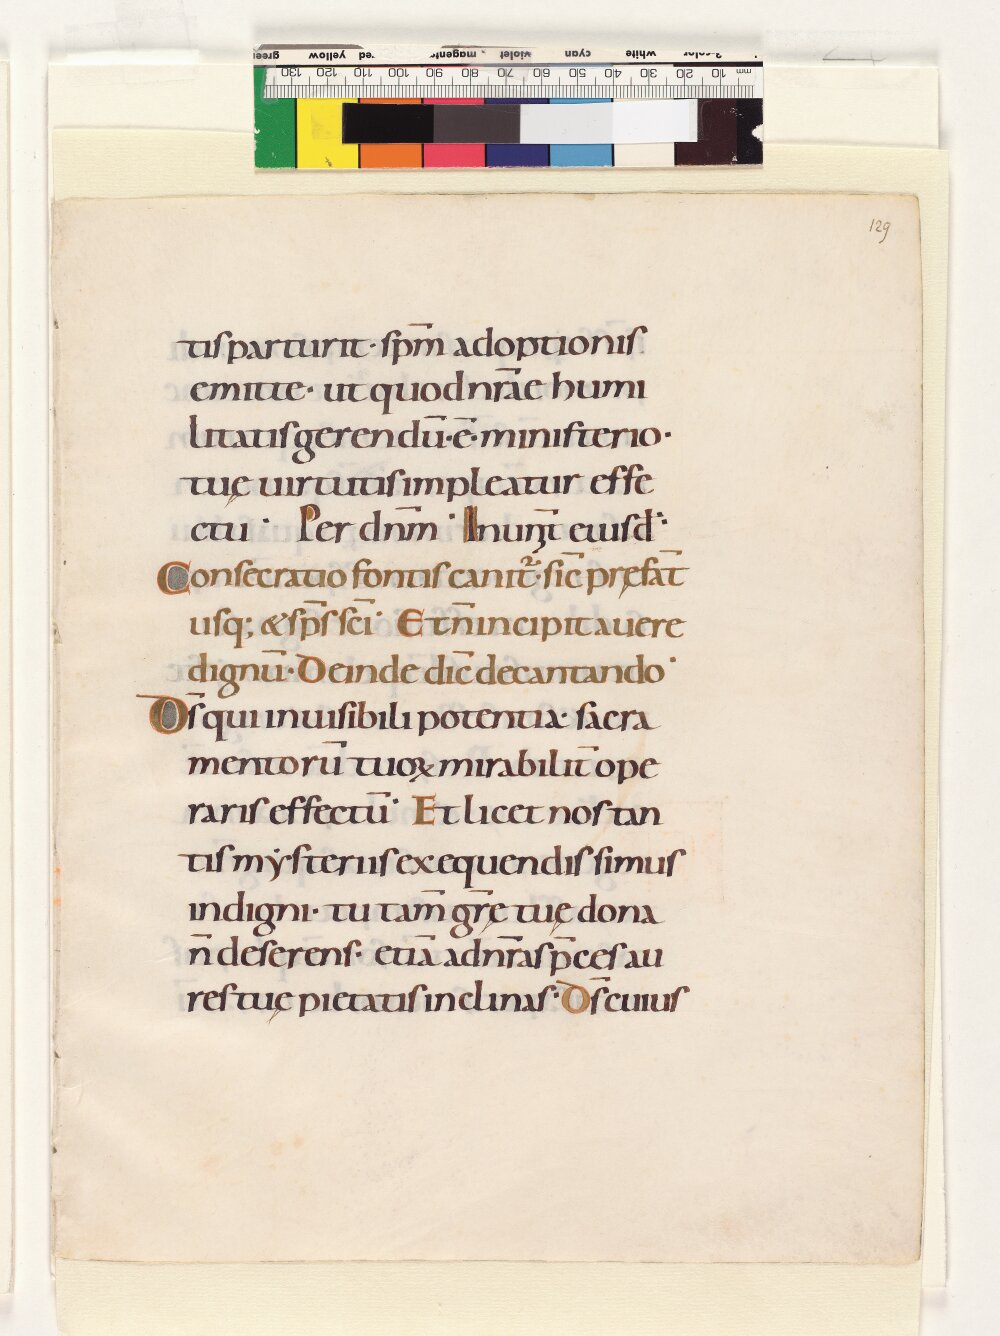 129
tis parturit· sp̄m adoptionis
emitte· ut quod nr̄ae humi
litatis gerendū·ē· ministerio·
tuę uirtutis impleatur effe
ctu· Per dn̄m· In unīt eiusd·
Consecratio fontis canit᷑· sic̄ pręfat̄
usq; & sp̄s sc̄i· Et n̄ incipit a uere
dignū· Deinde dic̄ decantando·
Ds̄ qui inuisibili potentia· sacra
mentorū tuoꝝ mirabilit̄ ope
raris effectū· Et licet nos tan
tis mẏsteriis exequendis simus
indigni· tu tam̄ gr̄ę tuę dona
n̄ deserens· etiā ad nr̄as p̄ces au
res tuę pietatis inclinas· Ds̄ cuius